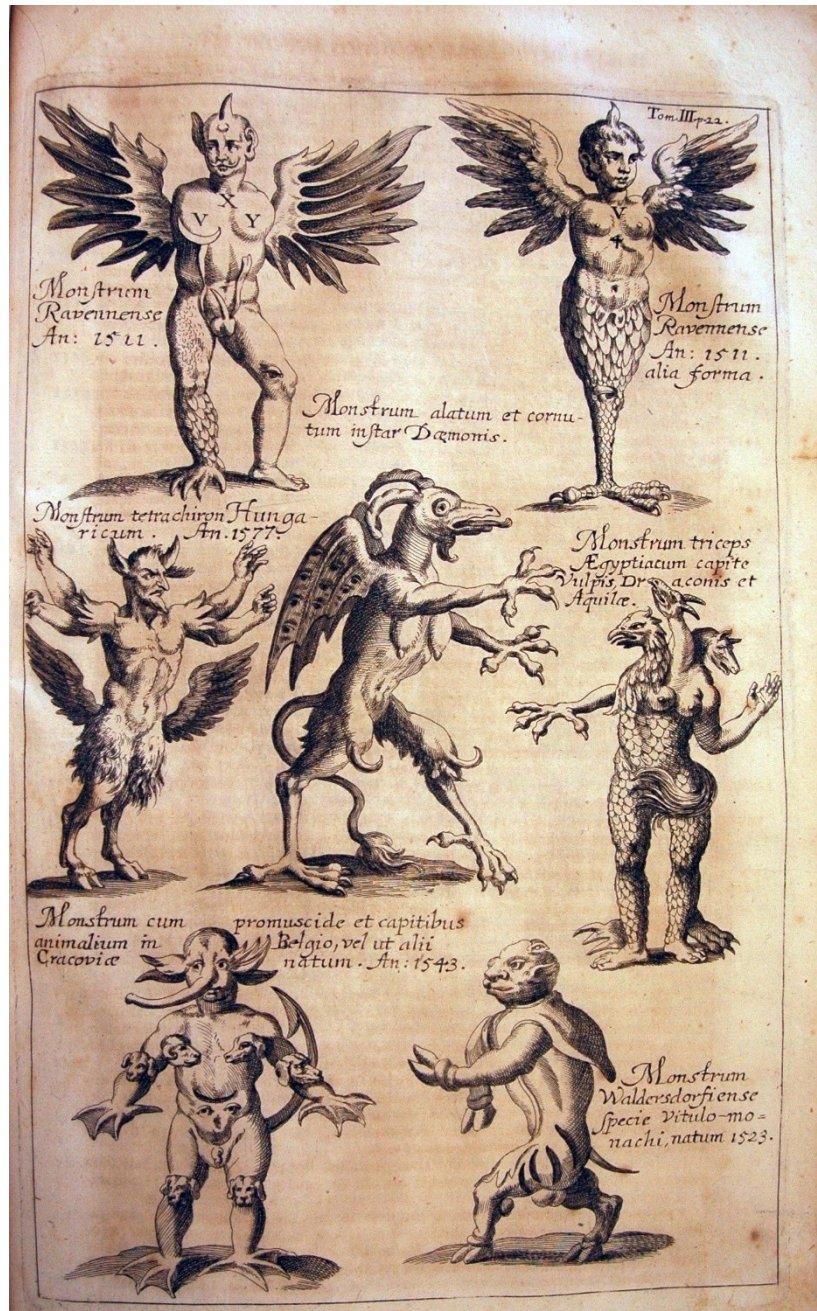 Tom. III. p. 22.
X
V Y
V
Monstrum
Ravennense
An: 1511.
Monstrum
Ravennense
An: 1511.
alia forma.
Monstrum alatum et cornu-
tum instar Dæmonis.
Monstrum tetrachiron Hunga-
ricum. An. 1577.
Monstrum triceps
Ægyptiacum capite
Vulpis, Draconis et
Aquilæ.
Monstrum cum promuscide et capitibus
animalium in Belgio, vel ut alii
Cracoviæ natum. An: 1543.
Monstrum
Waldersdorfiense
specie Vitulo-mo=
nachi, natum 1523.